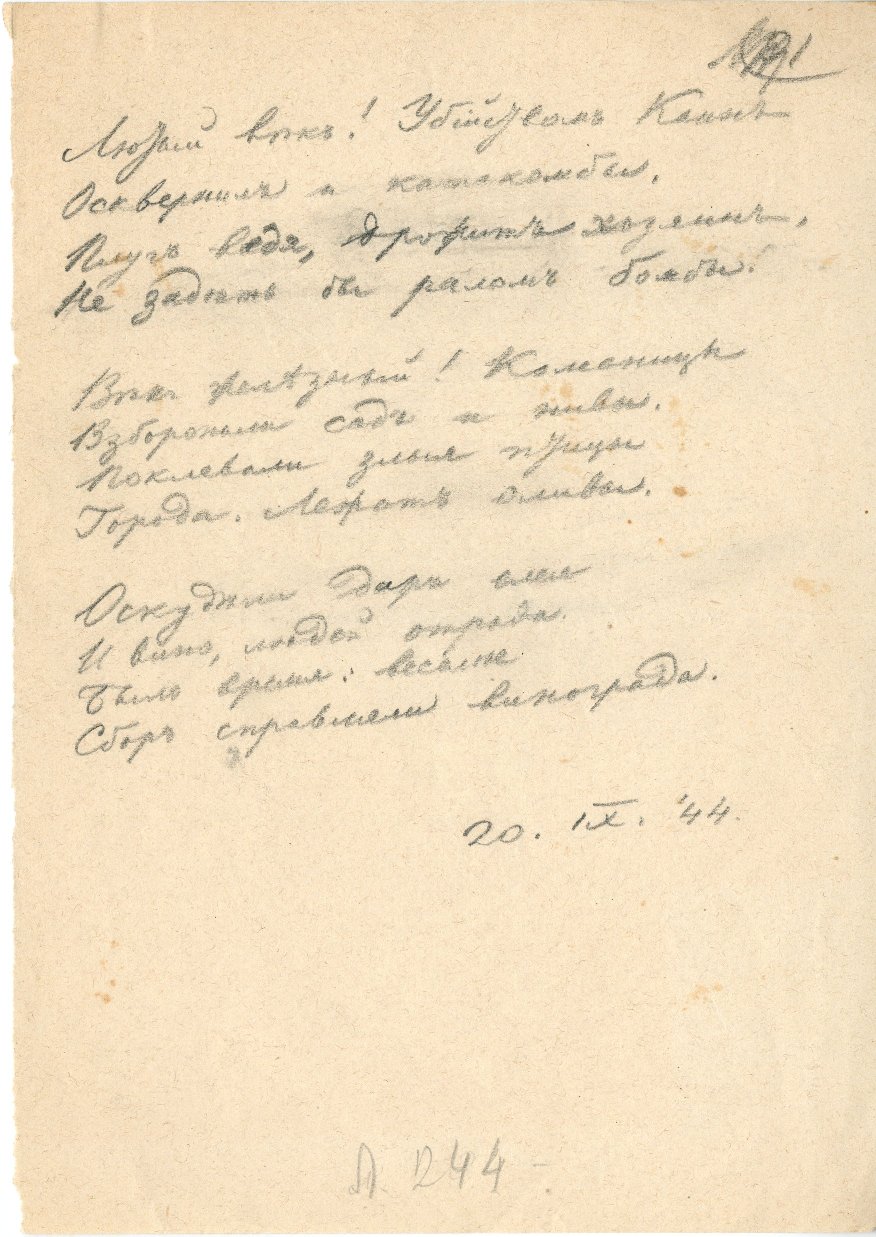 Лютый вѣкъ! Убійствомъ Каинъ
Осквернилъ и катакомбы.
Плугъ ведя, дрожитъ хозяинъ,
Не задѣть бы раломъ бомбы.
Вѣкъ желѣзный! Колесницы
Взборонили садъ и нивы.
Поклевали злыя птицы
Города. Лежатъ оливы.
Оскудѣли даръ елея
И вино, людей отрада.
Было время: веселѣе
Сборъ справляли винограда.
20. IX. '44.
Л. 244